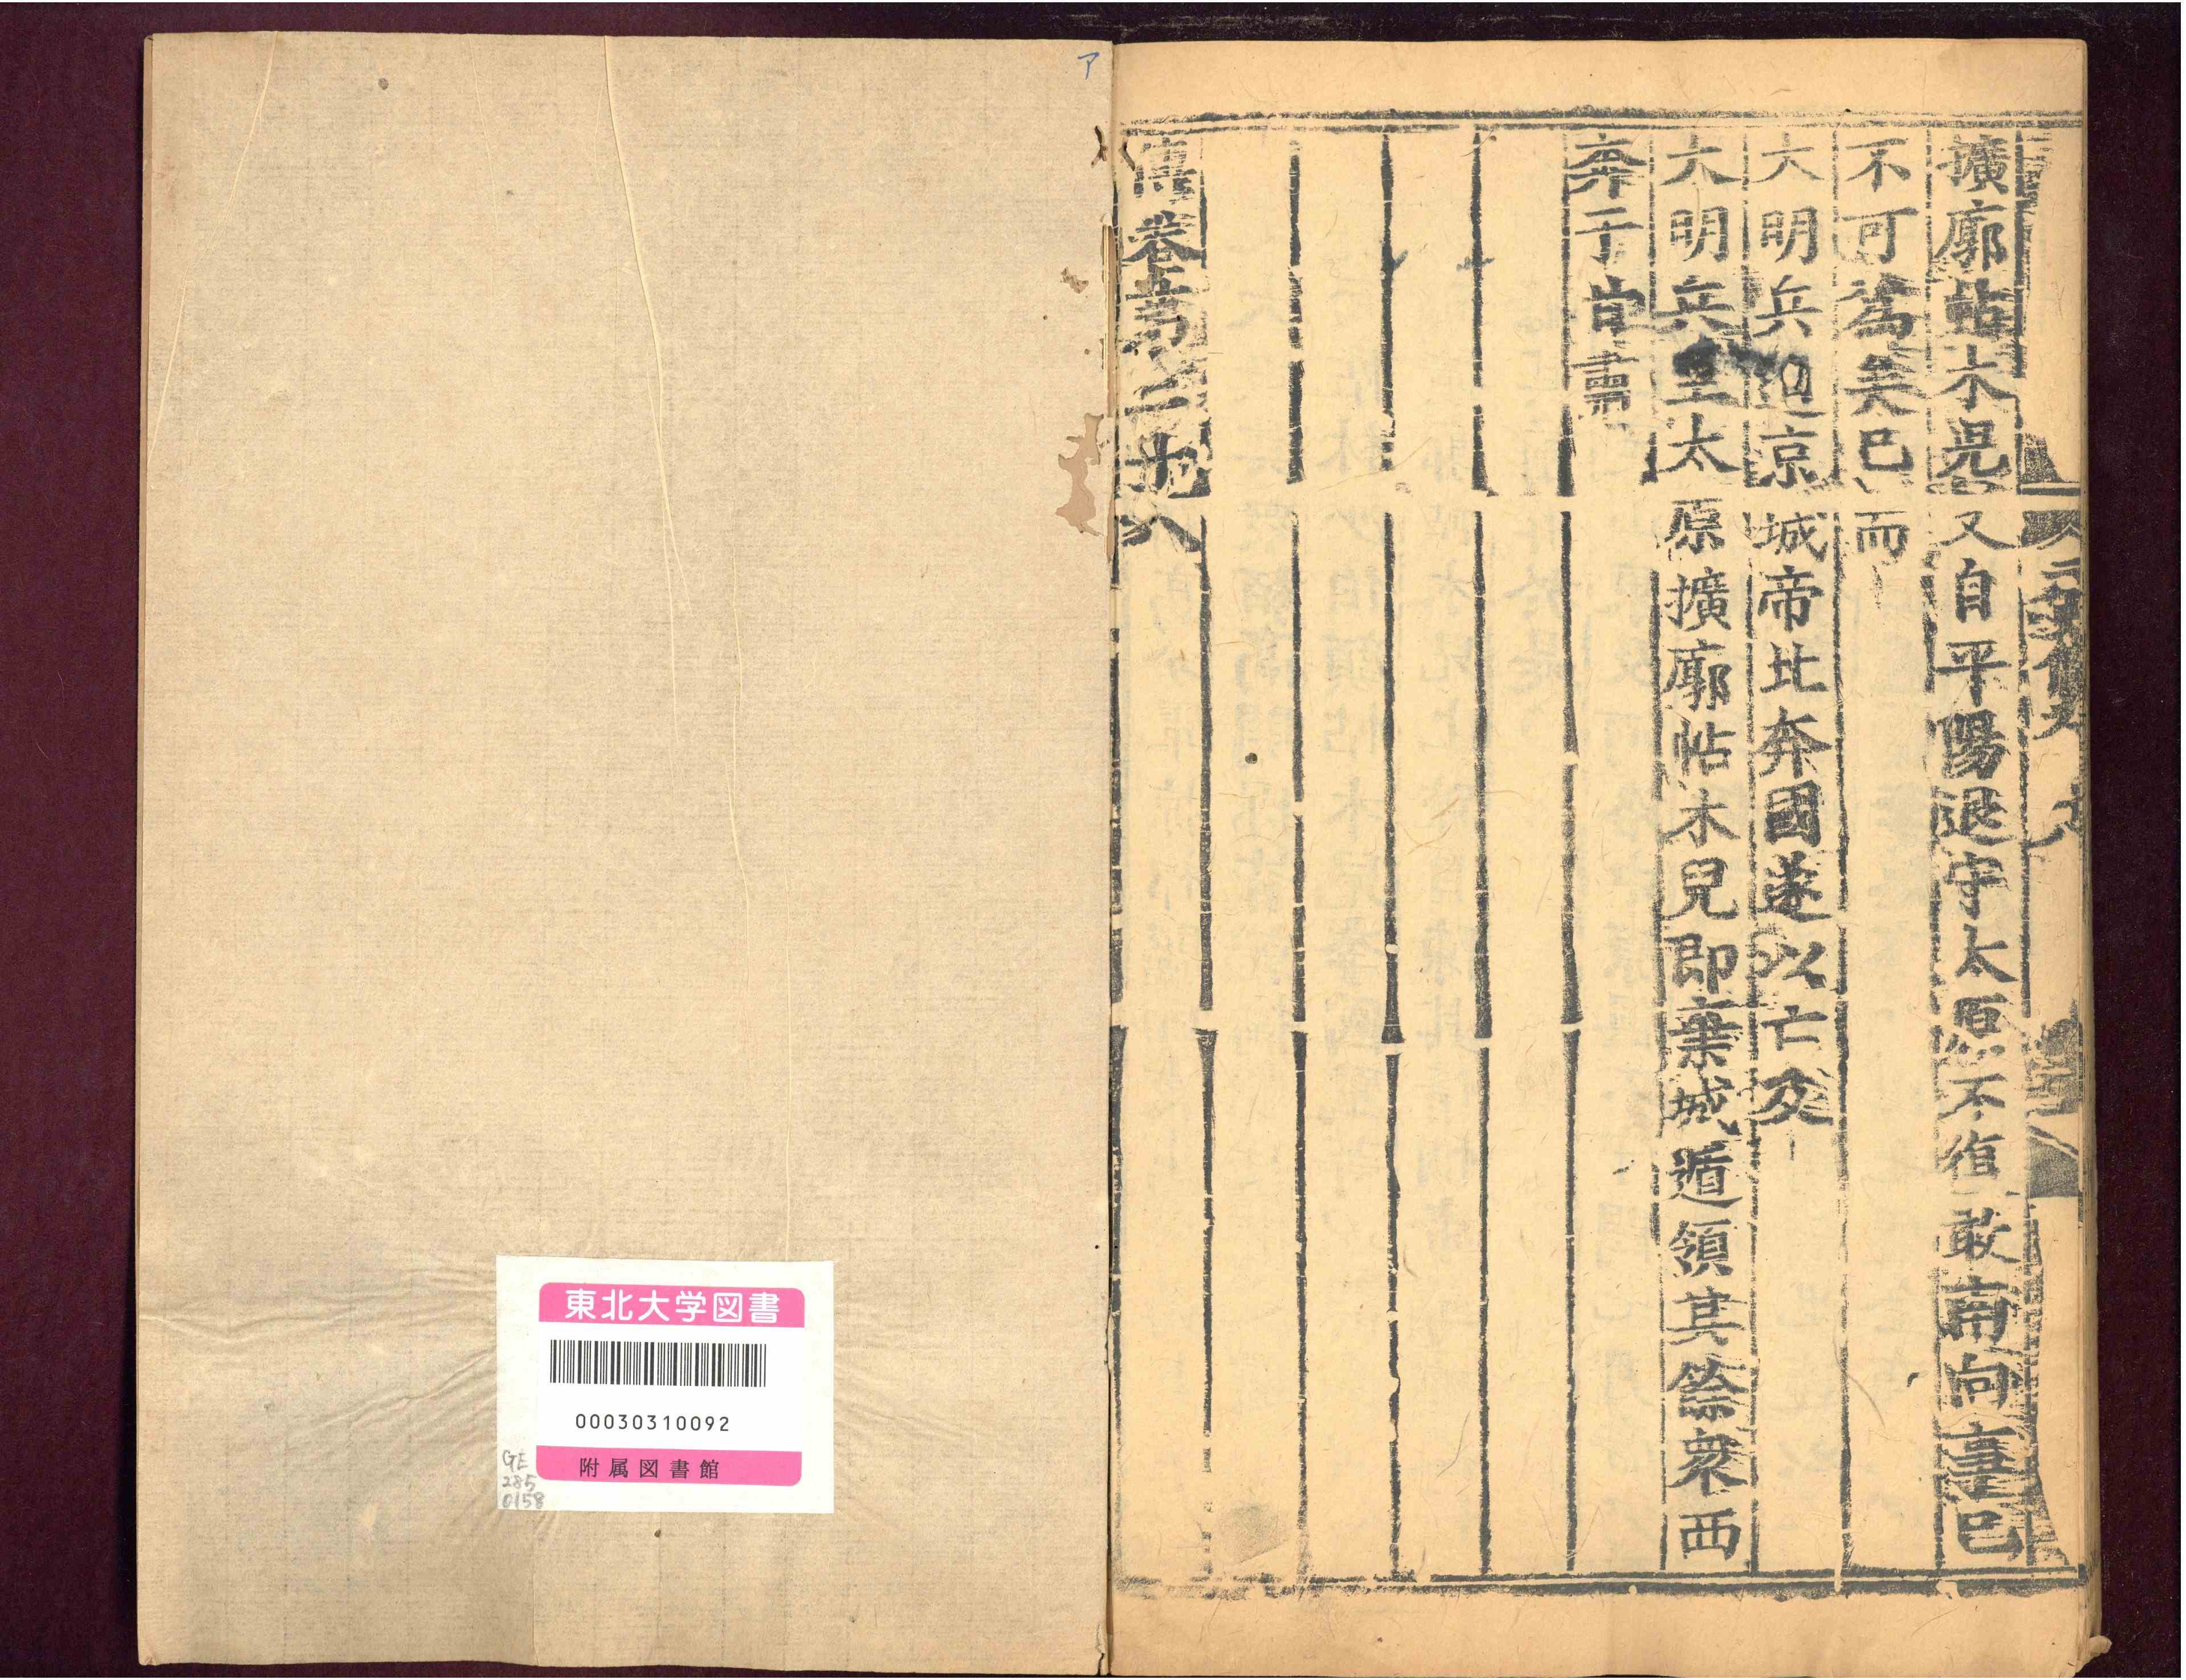 擴廓帖木兒又自平陽退守太原不復敢南向事已
不可為矣已而
大明兵迫京城帝北奔國遂以亡及
大明兵至太原擴廓帖木兒即棄城遁領其餘衆西
奔于甘肅
傳卷第二十八
ア
東北大学図書
00030310092
附属図書館
GE
285
0158